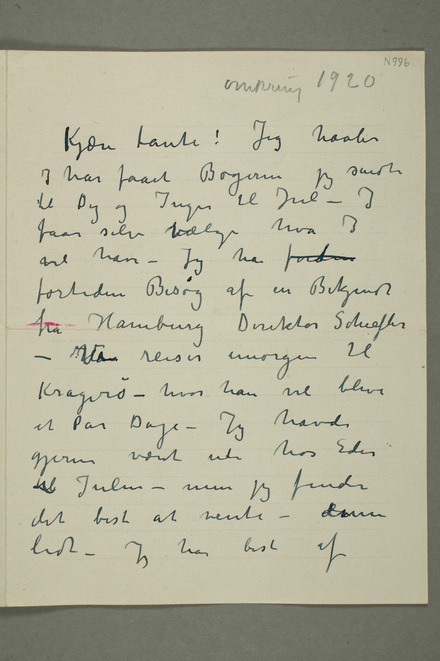 N 996
omkring 1920
Kjære tante! Jeg haaber
I har faaet Bøgerne jeg sendte
til Dig og Inger til Jul – I
faar selv vælge hva I
vil have – Jeg har forden
fortiden Besøg af en Bekjendt
fra Hamburg Direktør Schiefler
– Han reiser imorgen til
Kragerø – hvor han vil blive
et Par Dage – Jeg havde
gjerne været ude hos Eder
til Julen – men jeg finder
det best at vente –
lidt – Jeg har best af